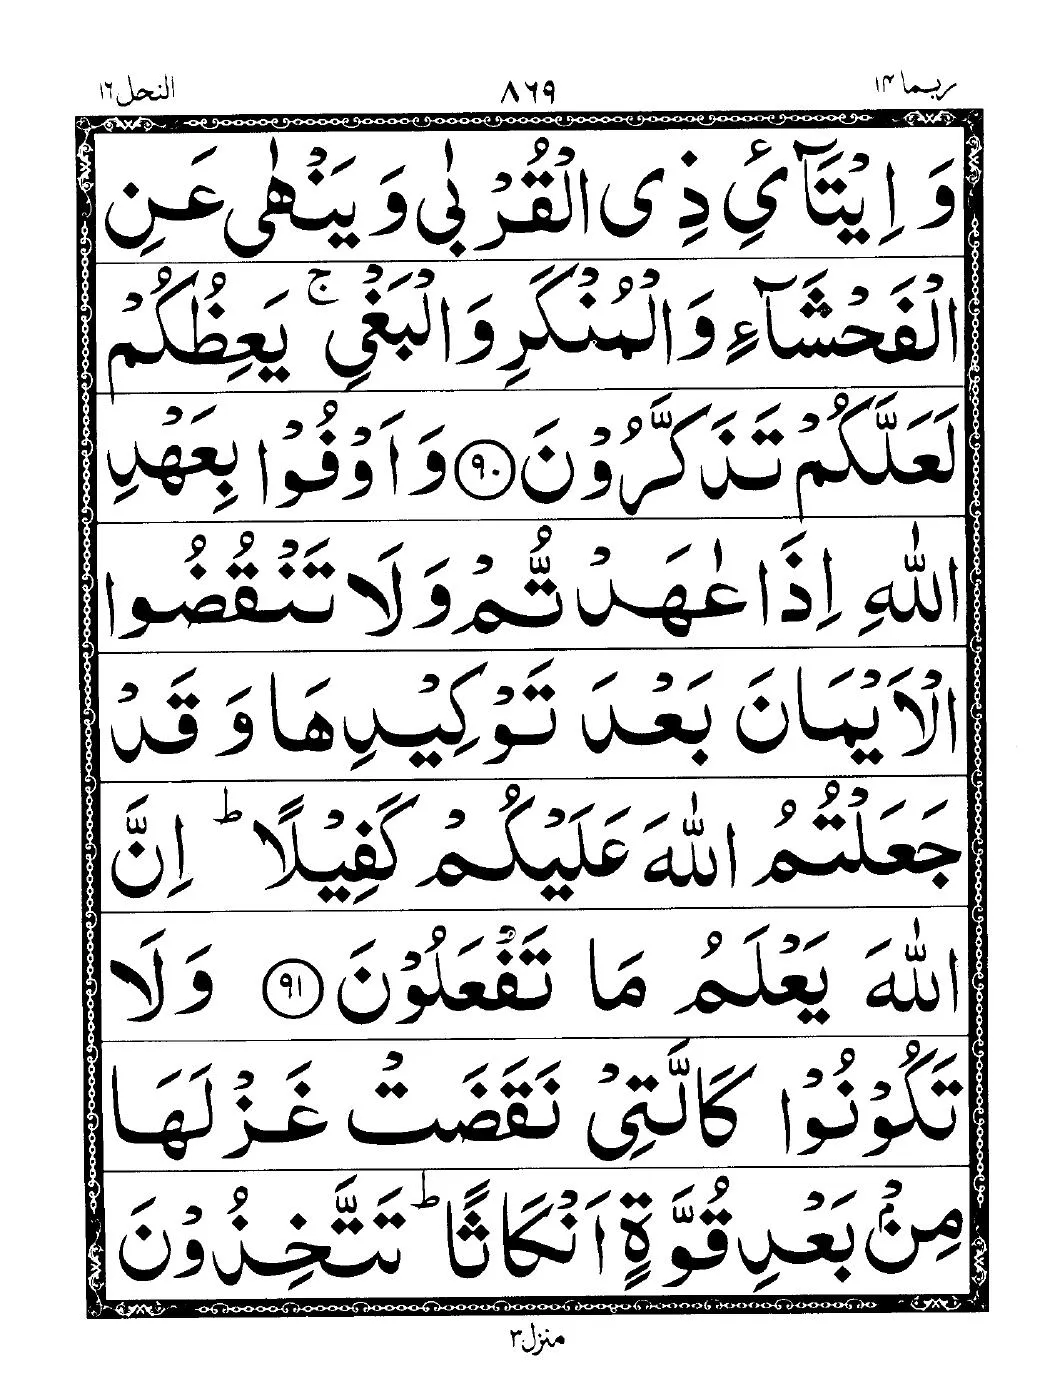 ربما ١٤ ٨٦٩ النحل ١٦
وَ اِیْتَآئِ ذِی الْقُرْبٰی وَ یَنْهٰی عَنِ
الْفَحْشَآءِ وَ الْمُنْكَرِ وَ الْبَغْیِ ۚ یَعِظُكُمْ
لَعَلَّكُمْ تَذَكَّرُوْنَ ﴿٩٠﴾ وَ اَوْفُوْا بِعَهْدِ
اللّٰهِ اِذَا عٰهَدْتُّمْ وَ لَا تَنْقُضُوا
الْاَیْمَانَ بَعْدَ تَوْكِیْدِهَا وَ قَدْ
جَعَلْتُمُ اللّٰهَ عَلَیْكُمْ كَفِیْلًا ؕ اِنَّ
اللّٰهَ یَعْلَمُ مَا تَفْعَلُوْنَ ﴿٩١﴾ وَ لَا
تَكُوْنُوْا كَالَّتِیْ نَقَضَتْ غَزْلَهَا
مِنْۢ بَعْدِ قُوَّةٍ اَنْكَاثًا ؕ تَتَّخِذُوْنَ
منزل ٣